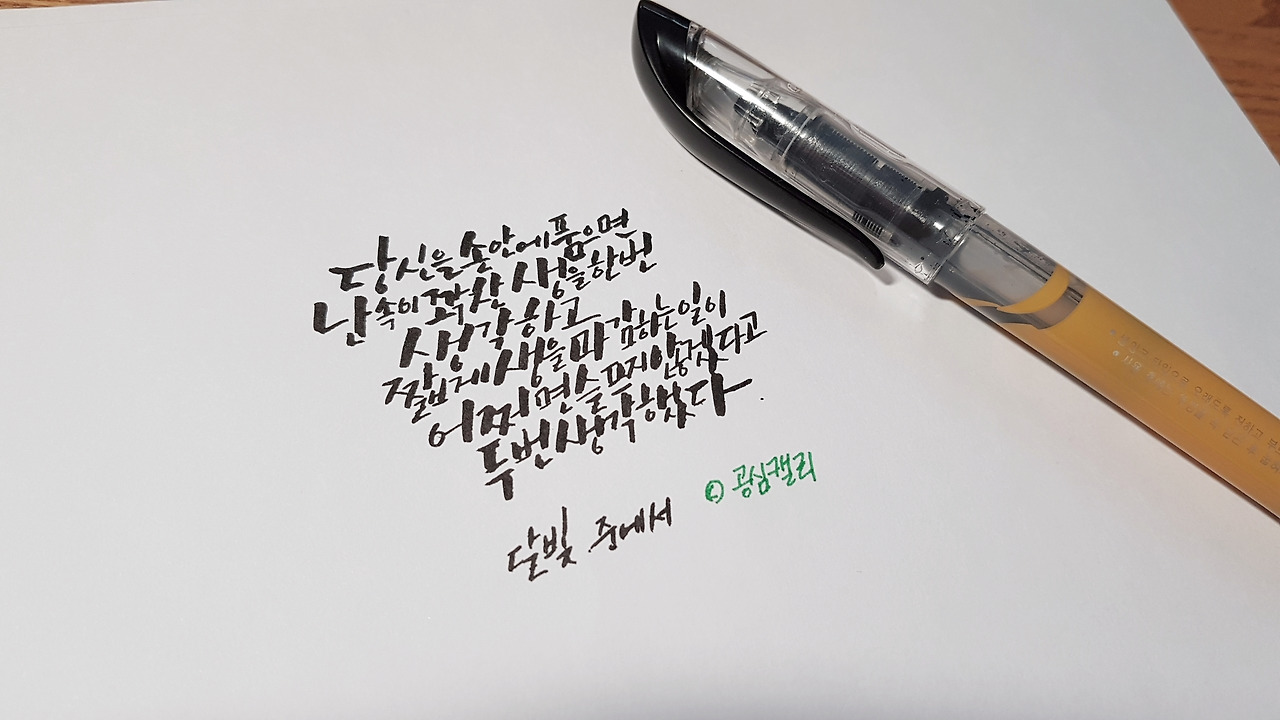 당신을 손안에 품으면
난 속이 꽉 찬 생을 한번
생각하고
짧게 생을 마감하는 일이
어쩌면 슬프지 않겠다고
두번 생각했다.
달빛 중에서
© 광심캘리